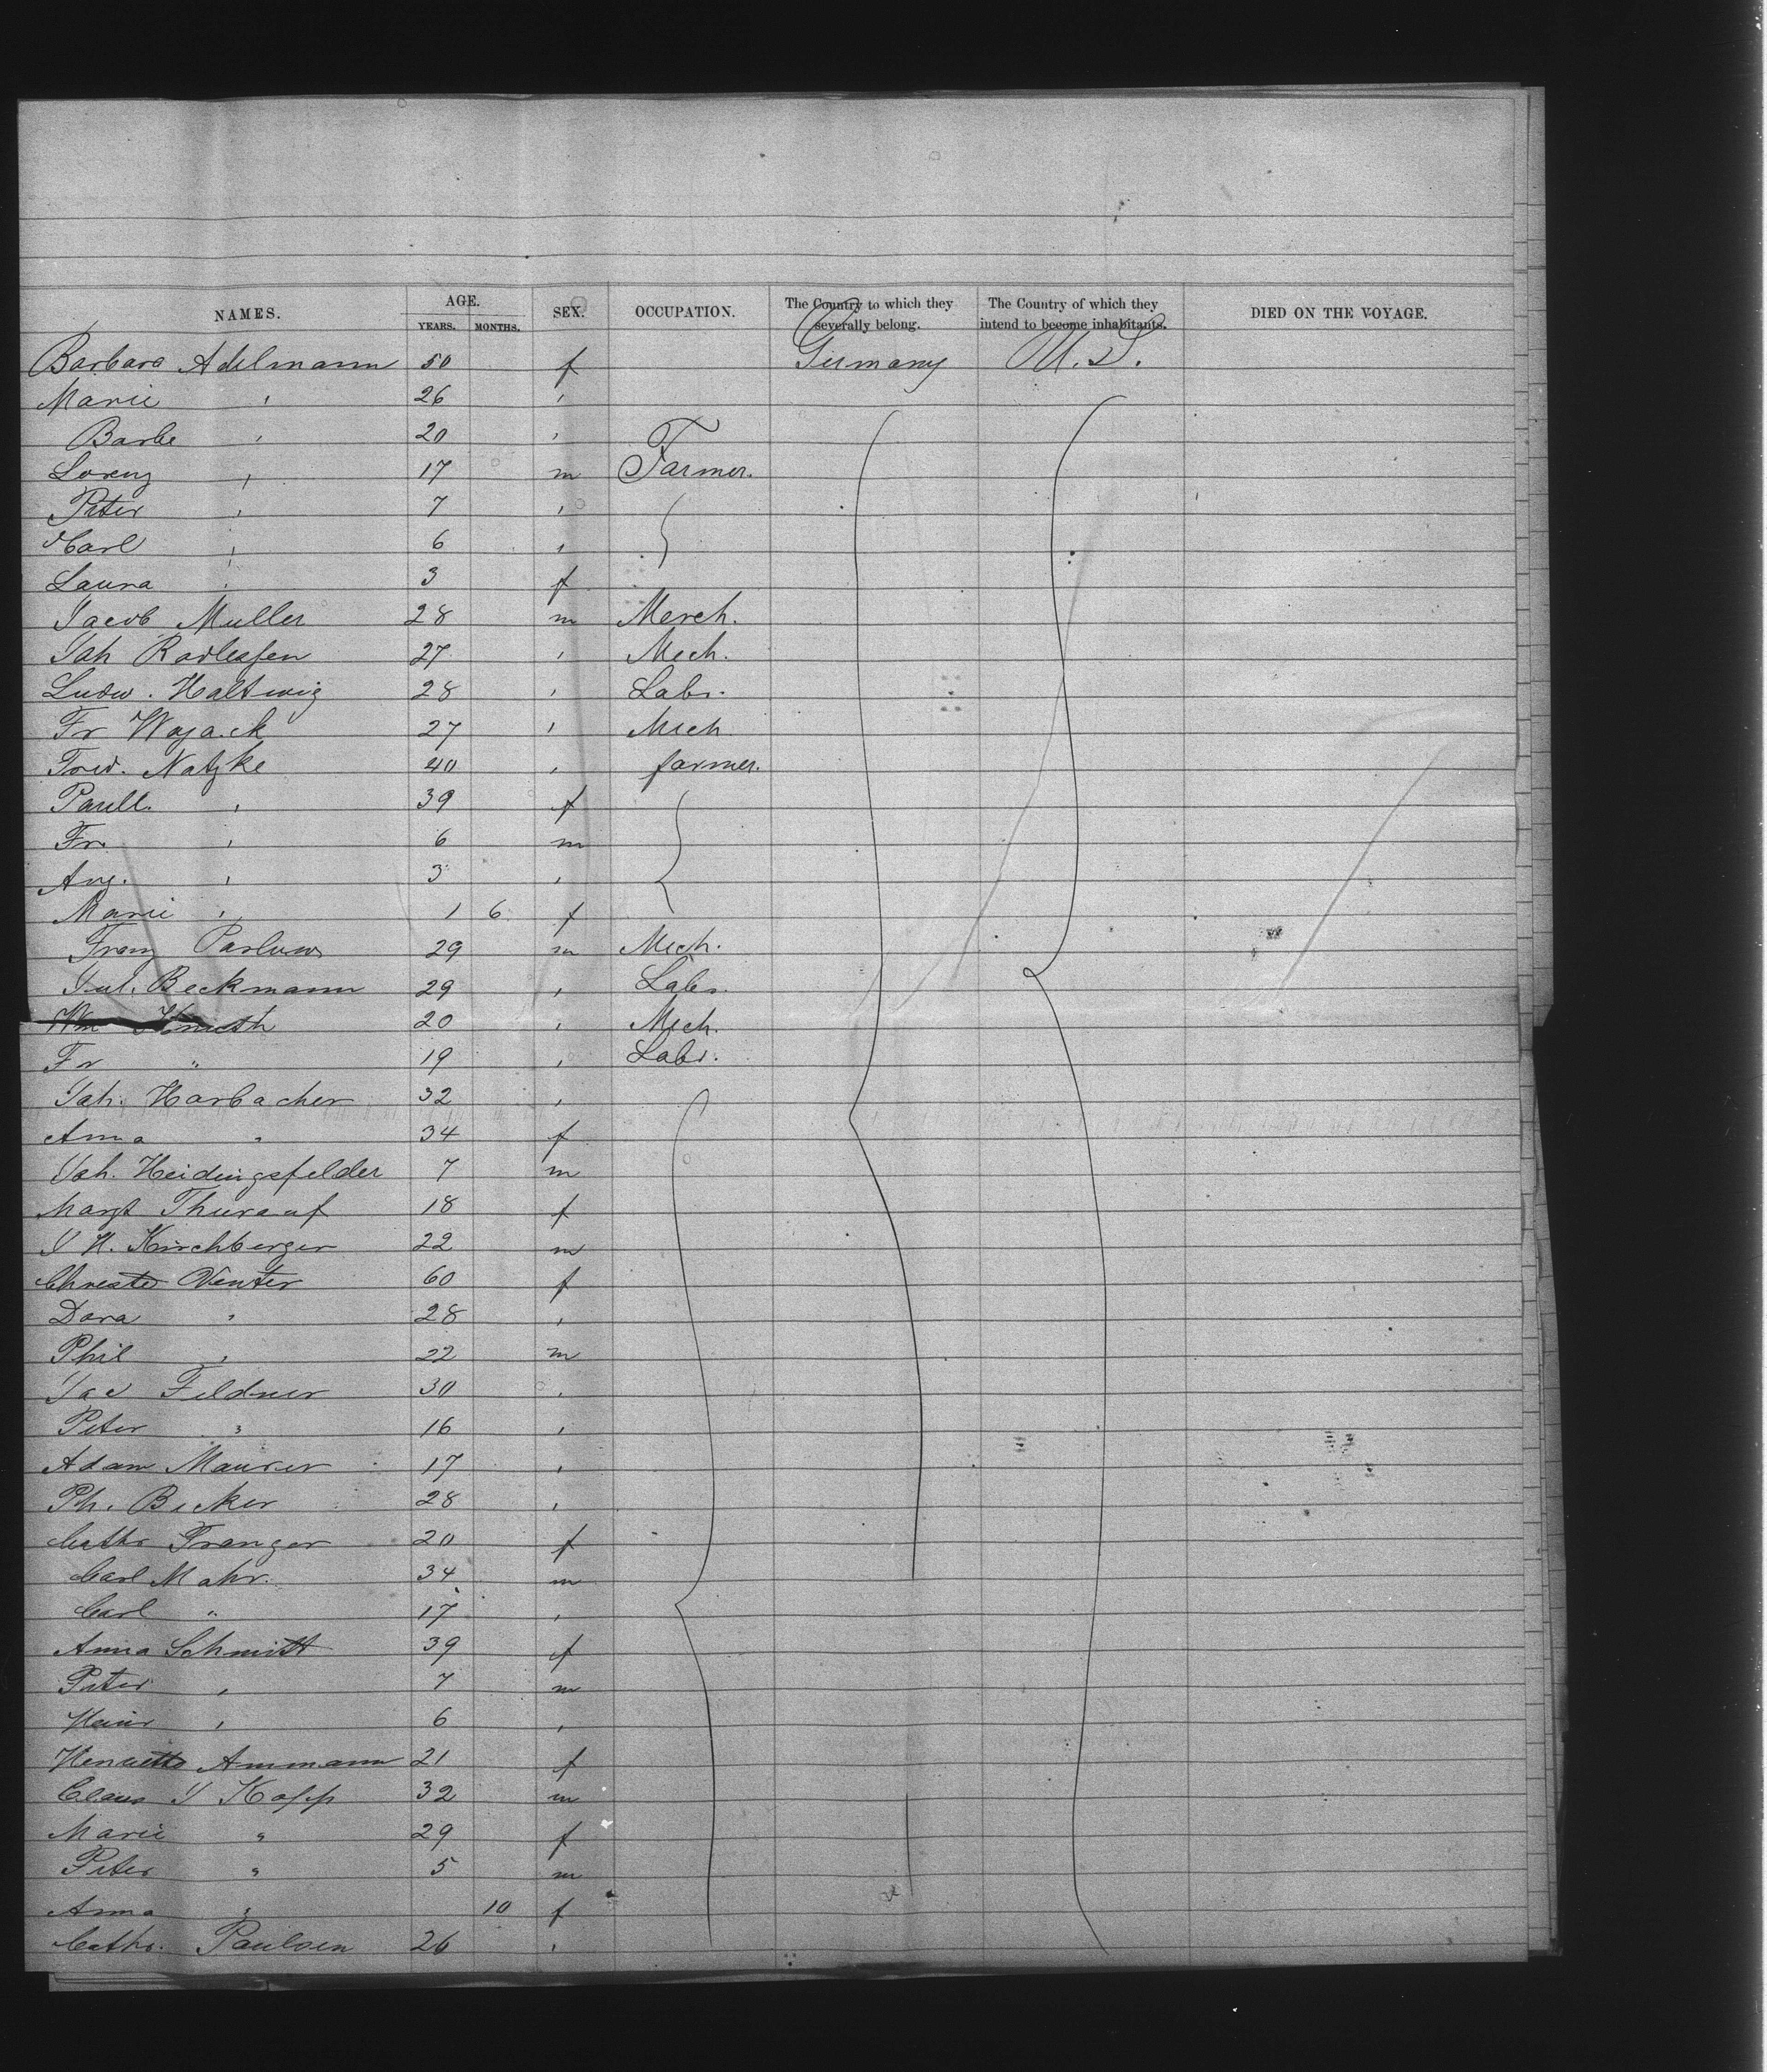 NAMES. AGE. YEARS. MONTHS. SEX. OCCUPATION. The Country to which they severally belong. The Country of which they intend to become inhabitants. DIED ON THE VOYAGE.
Barbara Adelmann 50 f Germany U.S.
Marie " 26 "
Barbe " 20 "
Lorenz " 17 m Farmer.
Peter " 7 "
Carl " 6 "
Laura " 3 f
Jacob Muller 28 m Merch.
Joh 27 " Mech.
Ludw. Haltwig 28 " Labr.
Fr Wojack 27 " Mech
Natzke 40 " farmer.
" 39 f
Fr. " 6 m
Aug. " 3 "
Marie " 1 6 f
Franz 29 m Mech.
Jul. Beckmann 29 " Labr.
Wm 20 " Mech.
Fr " 19 " Labr.
Joh. Harbacher 32 "
Anna " 34 f
Joh. Heidingsfelder 7 m
Margt Thurauf 18 f
J H. Kirchberger 22 m
Venter 60 f
Dora " 28 "
Phil " 22 m
Jac Feldner 30 "
Peter " 16 "
Adam Maurer 17 "
Ph. Becker 28 "
Cathr Franger 20 f
Carl Mahr. 34 m
Carl " 17 "
Anna Schmitt 39 f
Peter " 7 m
Heinr " 6 "
Henriette Ammann 21 f
Claus J Kopp 32 m
Marie " 29 f
Peter " 5 m
Anna " 10 f
Cathr. Paulsen 26 "